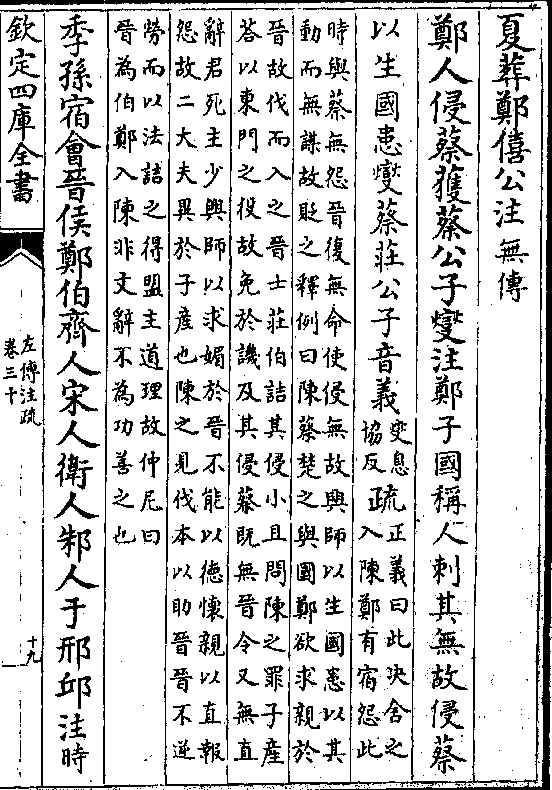 夏葬鄭僖公注無傳
鄭人侵蔡獲蔡公子燮注鄭子國稱人刺其無故侵蔡
以生國患燮蔡莊公子音義燮息協反疏正義曰此決舍之入陳鄭有宿怨此
時與蔡無怨晉復無命使侵無故興師以生國患以其
動而無謀故貶之釋例曰陳蔡楚之與國鄭欲求親於
晉故伐而入之晉士莊伯詰其侵小且問陳之罪子產
荅以東門之役故免於譏及其侵蔡既無晉令又無直
辭君死主少興師以求媚於晉不能以德懷親以直報
怨故二大夫異於子產也陳之見伐本以助晉晉不逆
勞而以法詰之得盟主道理故仲尼曰
晉為伯鄭入陳非文辭不為功善之也
季孫宿會晉侯鄭伯齊人宋人衛人邾人于邢邱注時
欽定四庫全書
左傳注疏
卷三十
十九